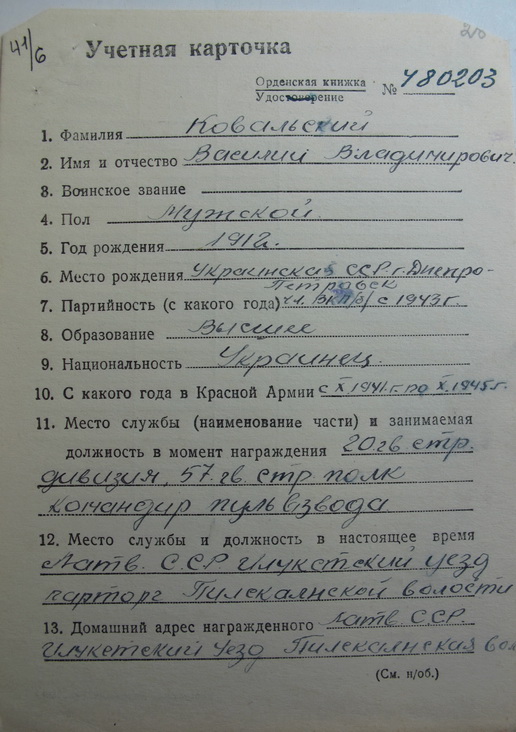 41/6
20
Учетная карточка
Орденская книжка
Удостоверение
№ 480203
1. Фамилия Ковальский
2. Имя и отчество Василий Владимирович.
3. Воинское звание
4. Пол Мужской.
5. Год рождения 1912г.
6. Место рождения Украинская ССР г. Днепро-
Петровск
7. Партийность (с какого года) чл. ВКП/б/ с 1943 г.
8. Образование Высшее
9. Национальность Украинец.
10. С какого года в Красной Армии с X 1941 г. по X. 1945 г.
11. Место службы (наименование части) и занимаемая
должность в момент награждения 20 гв. стр.
дивизия, 57. гв. стр. полк
командир пульвзвода
12. Место службы и должность в настоящее время
Латв. С.С.Р Илукстский уезд
парторг Пилскалнской волости
13. Домашний адрес награжденного Латв. ССР.
Илукстский Уезд Пилскалнская вол
(См. н/об.)